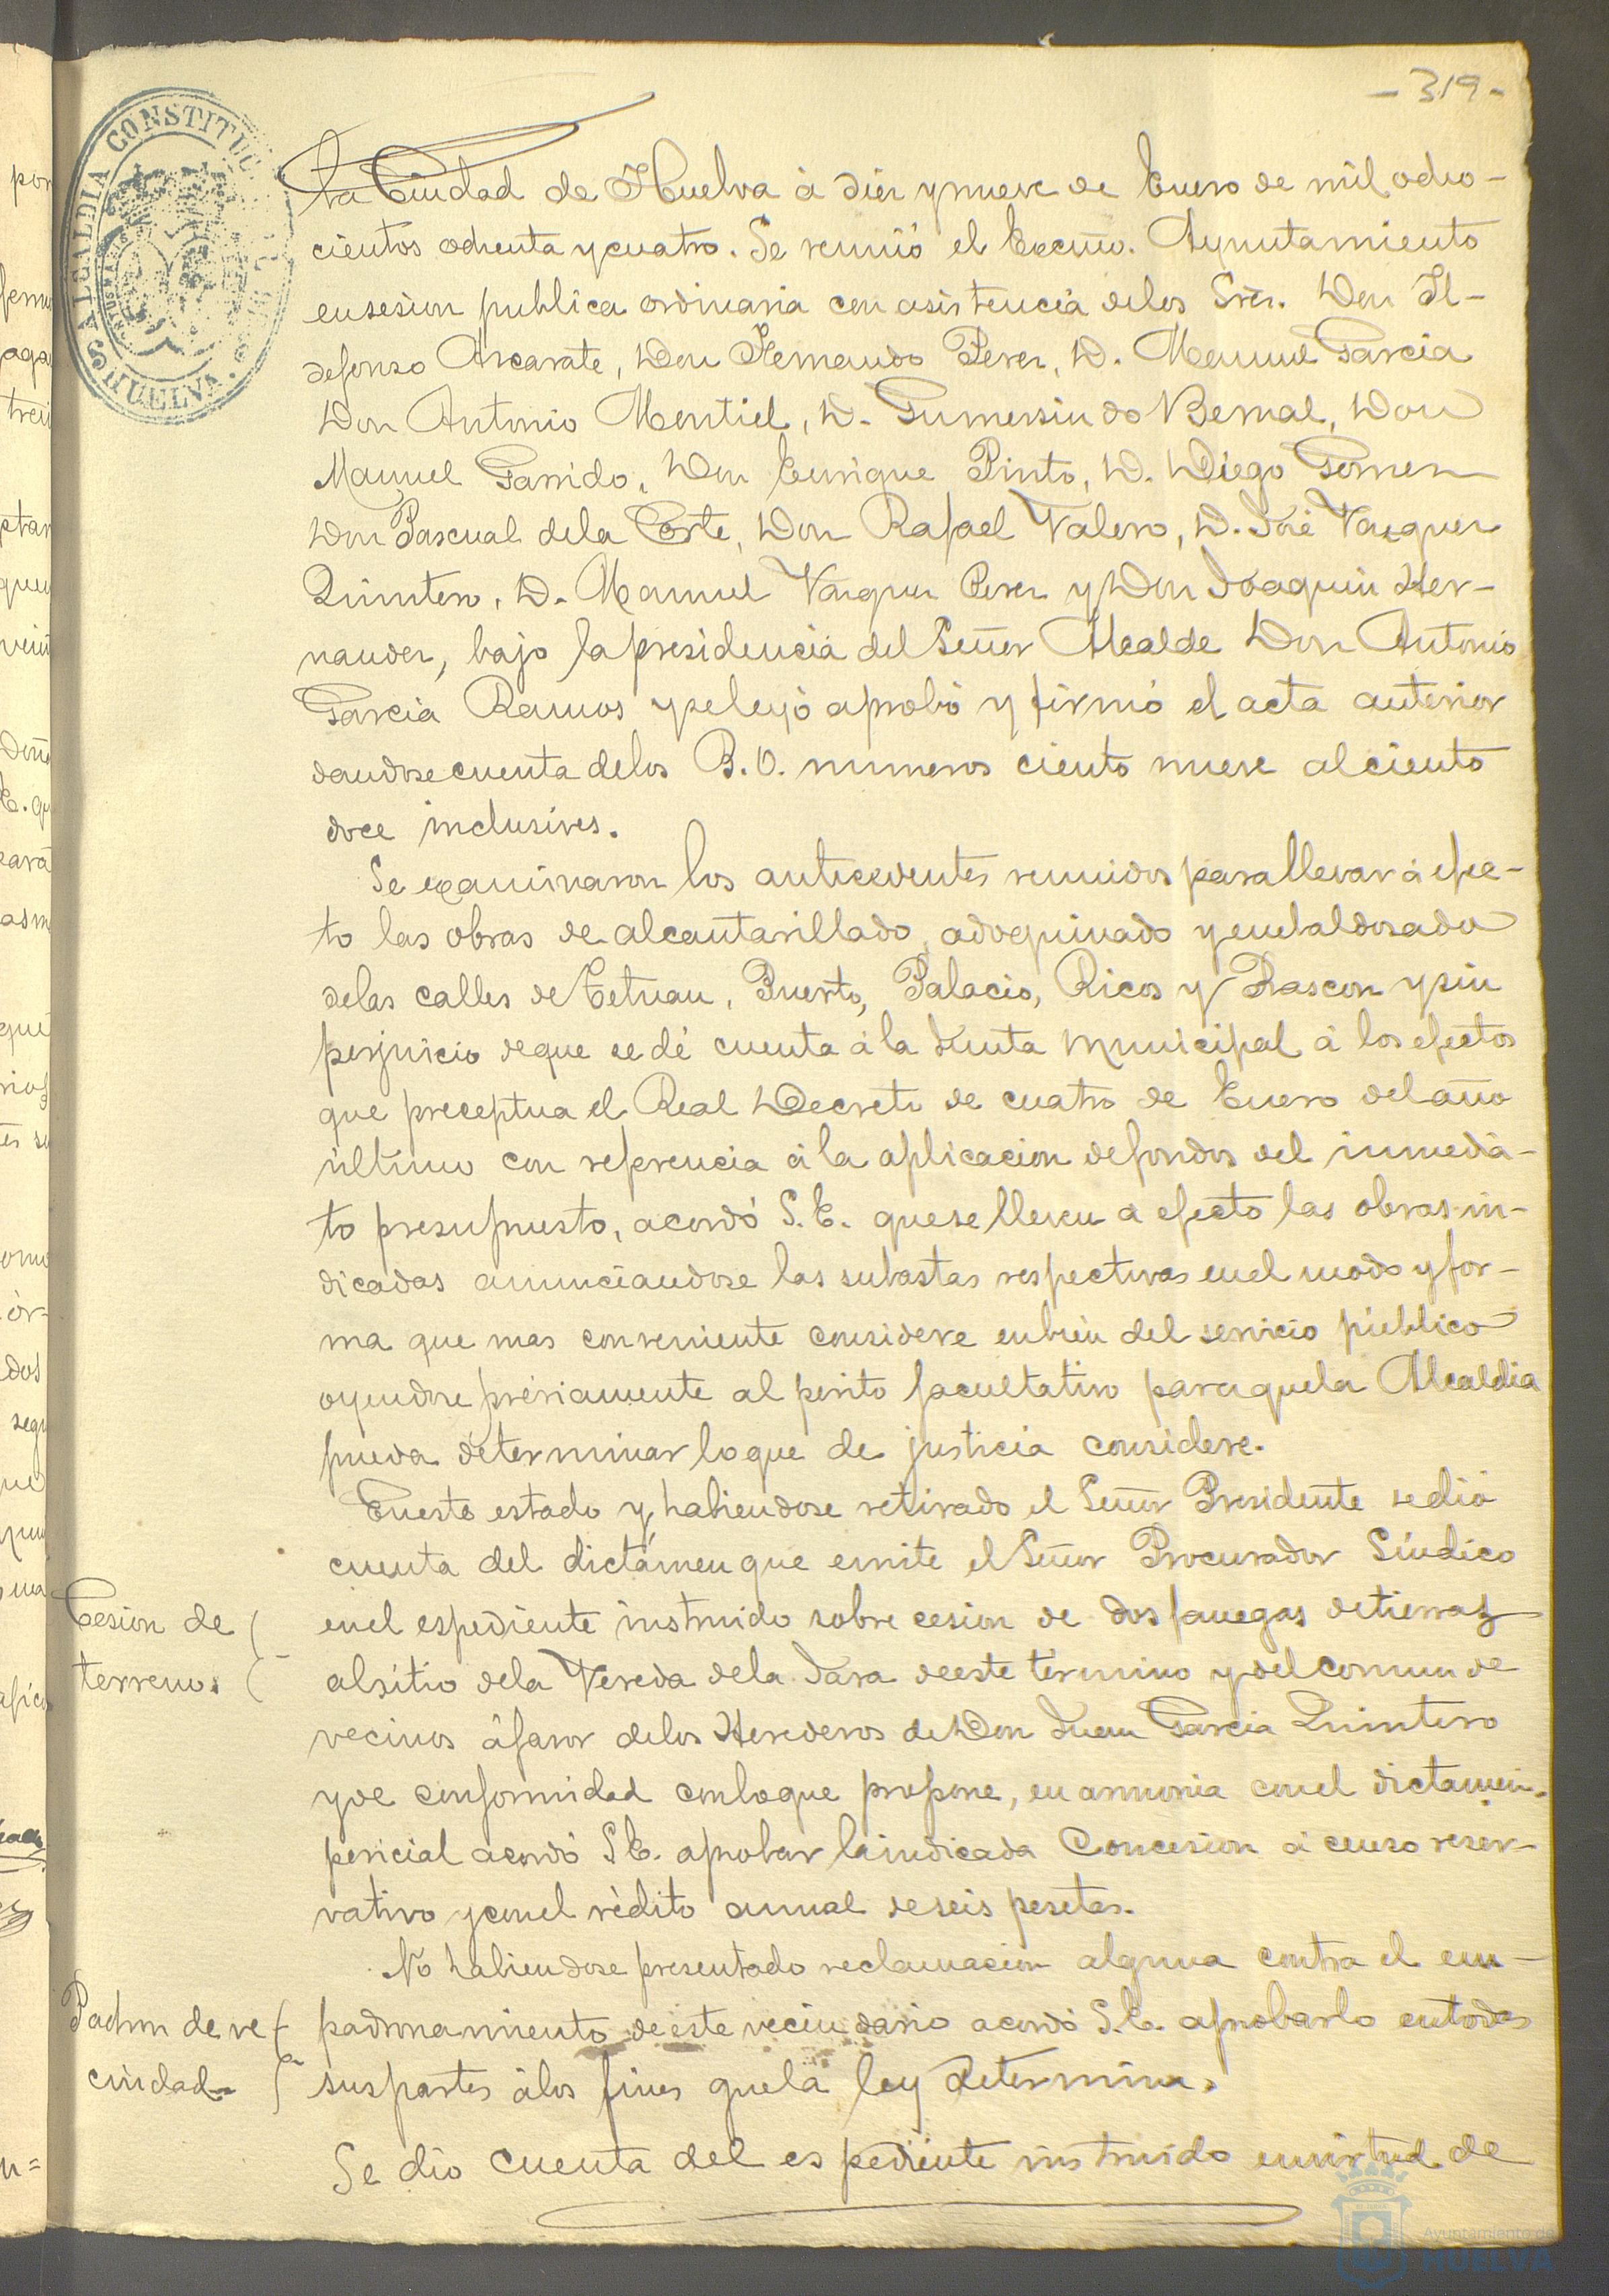 - 319 -
ALCALDIA CONSTITUC
HUELVA.
La Ciudad de Huelva á diez y nueve de Enero de mil ocho-
cientos ochenta y cuatro. Se reunió el Excmo. Ayuntamiento
en sesion publica ordinaria con asistencia de los Sres. Don Il-
defonso Azcarate, Don Fernando Perez, D. Manuel Garcia
Don Antonio Montiel, D. Gumersindo Bernal, Don
Manuel Garrido, Don Enrique Pinto, D. Diego Gomez
Don Pascual de la Corte, Don Rafael Valero, D. José Vazquez
Quintero, D. Manuel Vazquez Perez y Don Joaquin Her-
nandez, bajo la presidencia del Señor Alcalde Don Antonio
Garcia Ramos y se leyó aprobó y firmó el acta anterior
dandose cuenta de los B. O. numeros ciento nueve al ciento
doce inclusives.
Se examinaron los antecedentes reunidos para llevar á efec-
to las obras de alcantarillado, adoquinado y enbaldosado
de las calles de Tetuan, Puerto, Palacio, Ricos y Rascon y sin
perjuicio de que se dé cuenta á la Junta Municipal á los efectos
que preceptua el Real Decreto de cuatro de Enero del año
último con referencia á la aplicacion de fondos del inmedia-
to presupuesto, acordó S. E. que se lleven a efecto las obras in-
dicadas anunciandose las subastas respectivas en el modo y for-
ma que mas conveniente considere en bien del servicio público
oyendose préviamente al perito facultativo para que la Alcaldia
pueda determinar lo que de justicia considere.
En este estado y habiendose retirado el Señor Presidente se dió
cuenta del dictámen que emite el Señor Procurador Síndico
Cesion de
terrenos
en el espediente instruido sobre cesion de dos fanegas de tierras
al sitio de la Vereda de la Jara de este termino y del comun de
vecinos á favor de los Herederos de Don Juan Garcia Quintero
y de conformidad con lo que propone, en armonia con el dictamen
pericial acordó S. E. aprobar la indicada Concesion á censo reser-
vativo y con el rédito anual de seis pesetas.
No habiendose presentado reclamacion alguna contra el em-
Padron de ve
cindad
padronamiento de este vecindario acordó S. E. aprobarlo en todas
sus partes á los fines que la ley determina.
Se dio cuenta del espediente instruido en virtud de
Ayuntamiento de
HUELVA